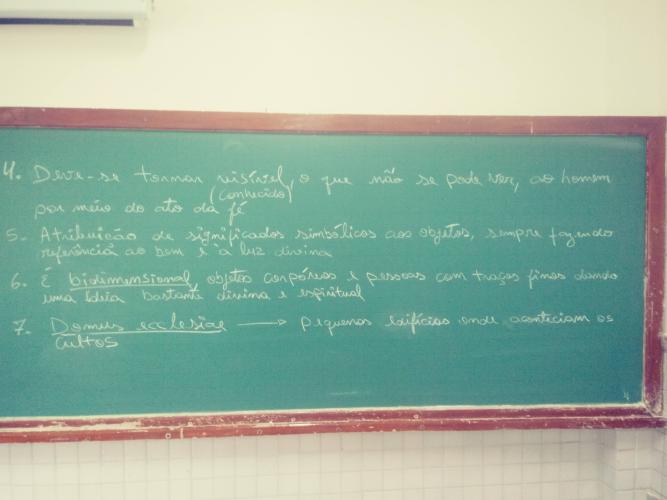 4. Deve-se tornar visível, o que não se pode ver, ao homem
(conhecido)
por meio do ato da fé
5. Atribuição de significados simbólicos aos objetos, sempre fazendo
referência ao bem e à luz divina
6. É bidimensional, objetos corpóreos e pessoas com traços finos dando
uma ideia bastante divina e espiritual
7. Domus ecclesiae → pequenos edifícios onde aconteciam os
cultos